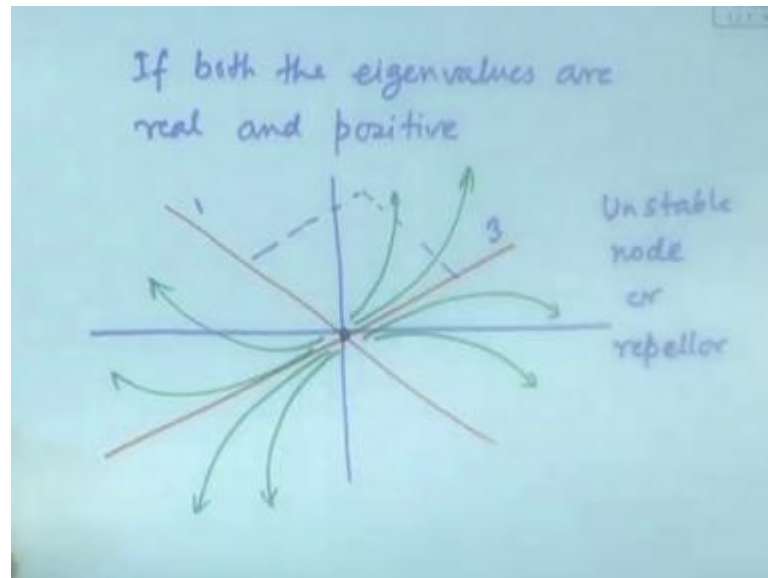 If both the eigenvalues are
real and positive
1
3
Unstable
node
or
repellor